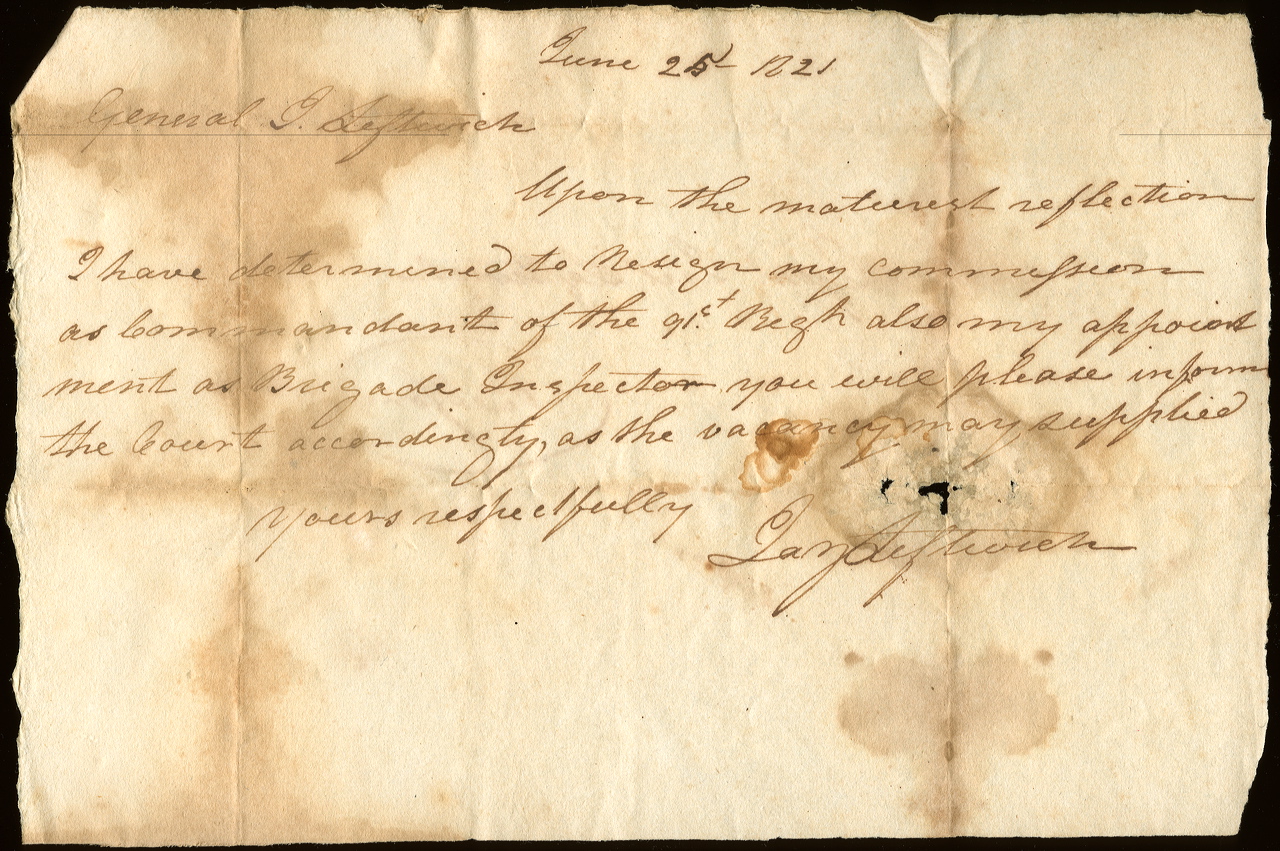 June 25 1821
General J. Leftwich
Upon the maturest reflection
I have determined to Resign my commission
as Commandant of the 91st Regt also my appoint
ment as Brigade Inspector you will please inform
the Court accordingly, as the vacancy may supplied
yours respectfully
Leftwich